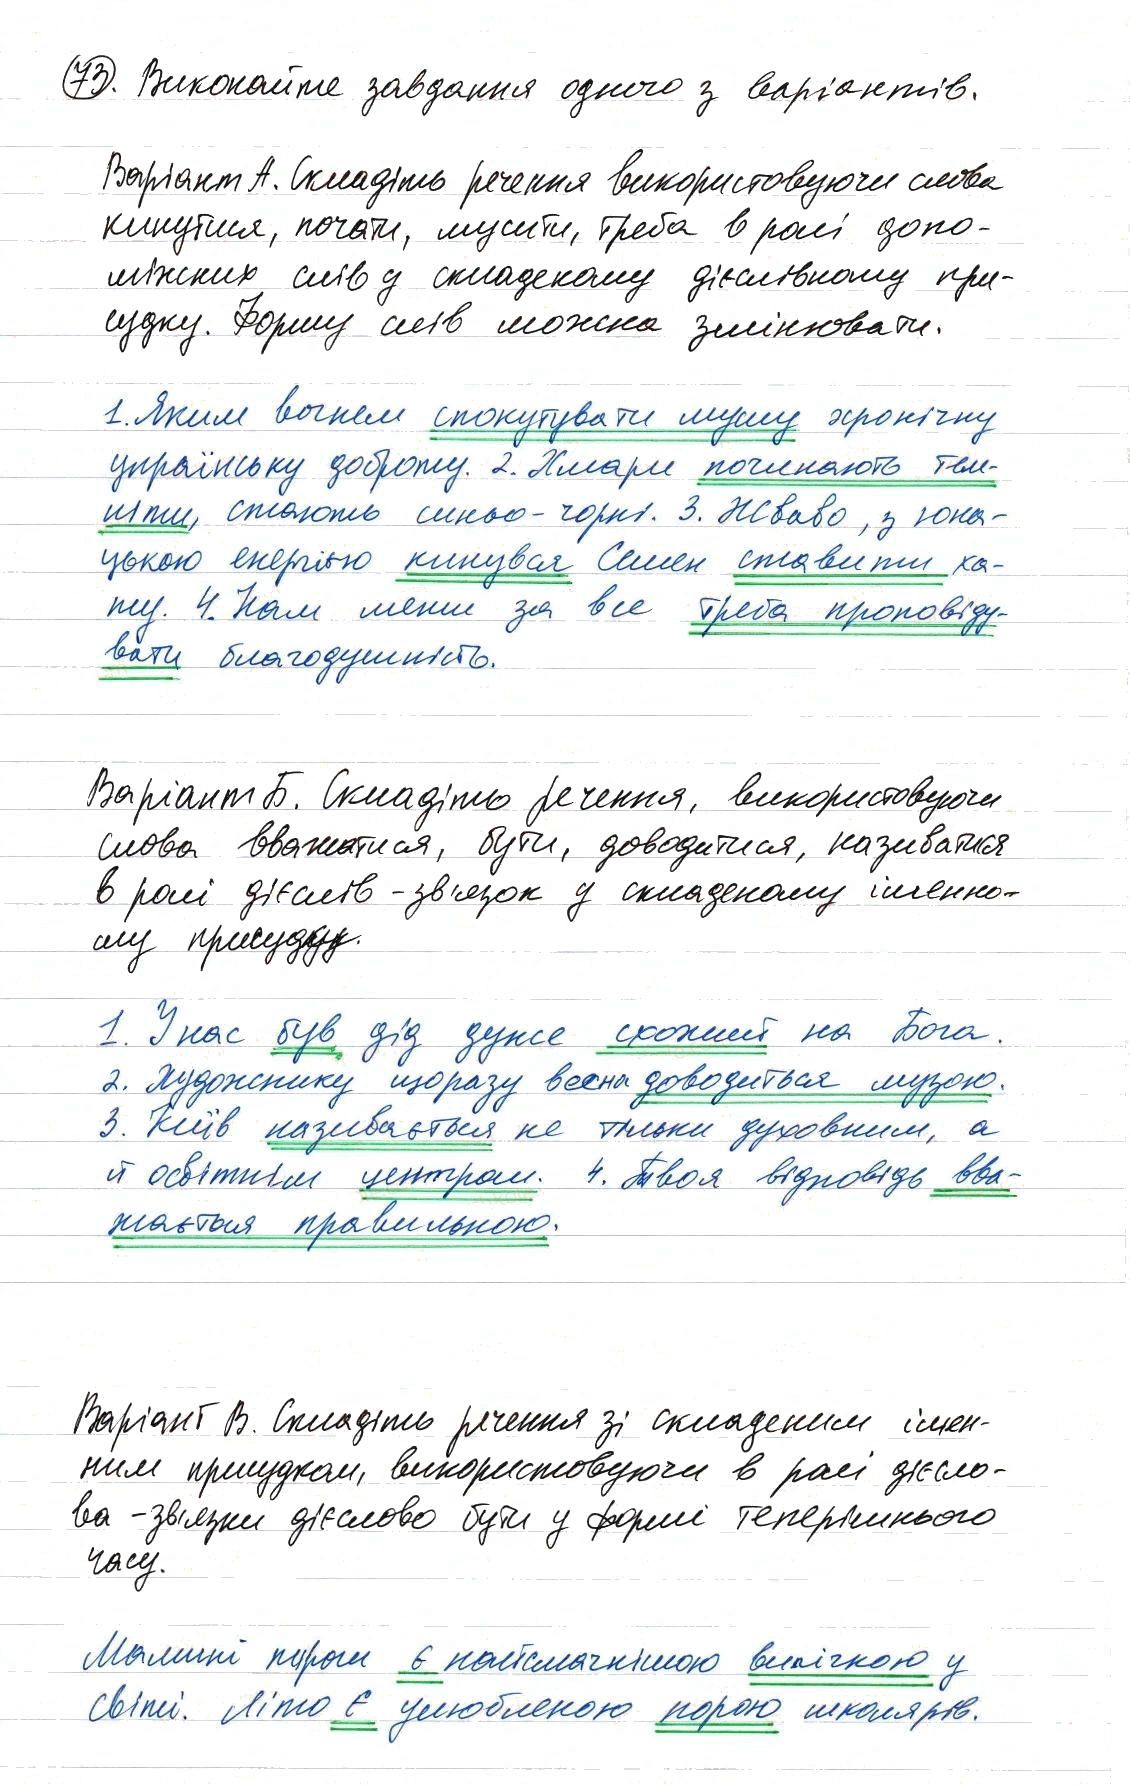 73. Виконайте завдання одного з варіантів.
Варіант А. Складіть речення використовуючи слова
кинутися, почати, мусити, треба в ролі допо-
міжних слів у складеному дієслівному при-
судку. Форму слів можна змінювати.
1. Яким вогнем спокутувати мушу хронічну
українську доброту. 2. Хмари починають тем-
ніти, стають синьо-чорні. 3. Жваво, з юна-
цькою енергією кинувся Семен ставити ха-
ту. 4. Нам менш за все треба проповіду-
вати благодушність.
Варіант Б. Складіть речення, використовуючи
слова вважатися, бути, доводитися, називатися
в ролі дієслів-зв'язок у складеному іменно-
му присудку.
1. У нас був дід дуже схожий на Бога.
2. Художнику щоразу весна доводиться музою.
3. Київ називається не тільки духовним, а
й освітнім центром. 4. Твоя відповідь вва-
жається правильною.
Варіант В. Складіть речення зі складеним імен-
ним присудком, використовуючи в ролі дієсло-
ва-зв'язки дієслово бути у формі теперішнього
часу.
Мамині пироги є найсмачнішою випічкою у
світі. Літо є улюбленою порою школярів.